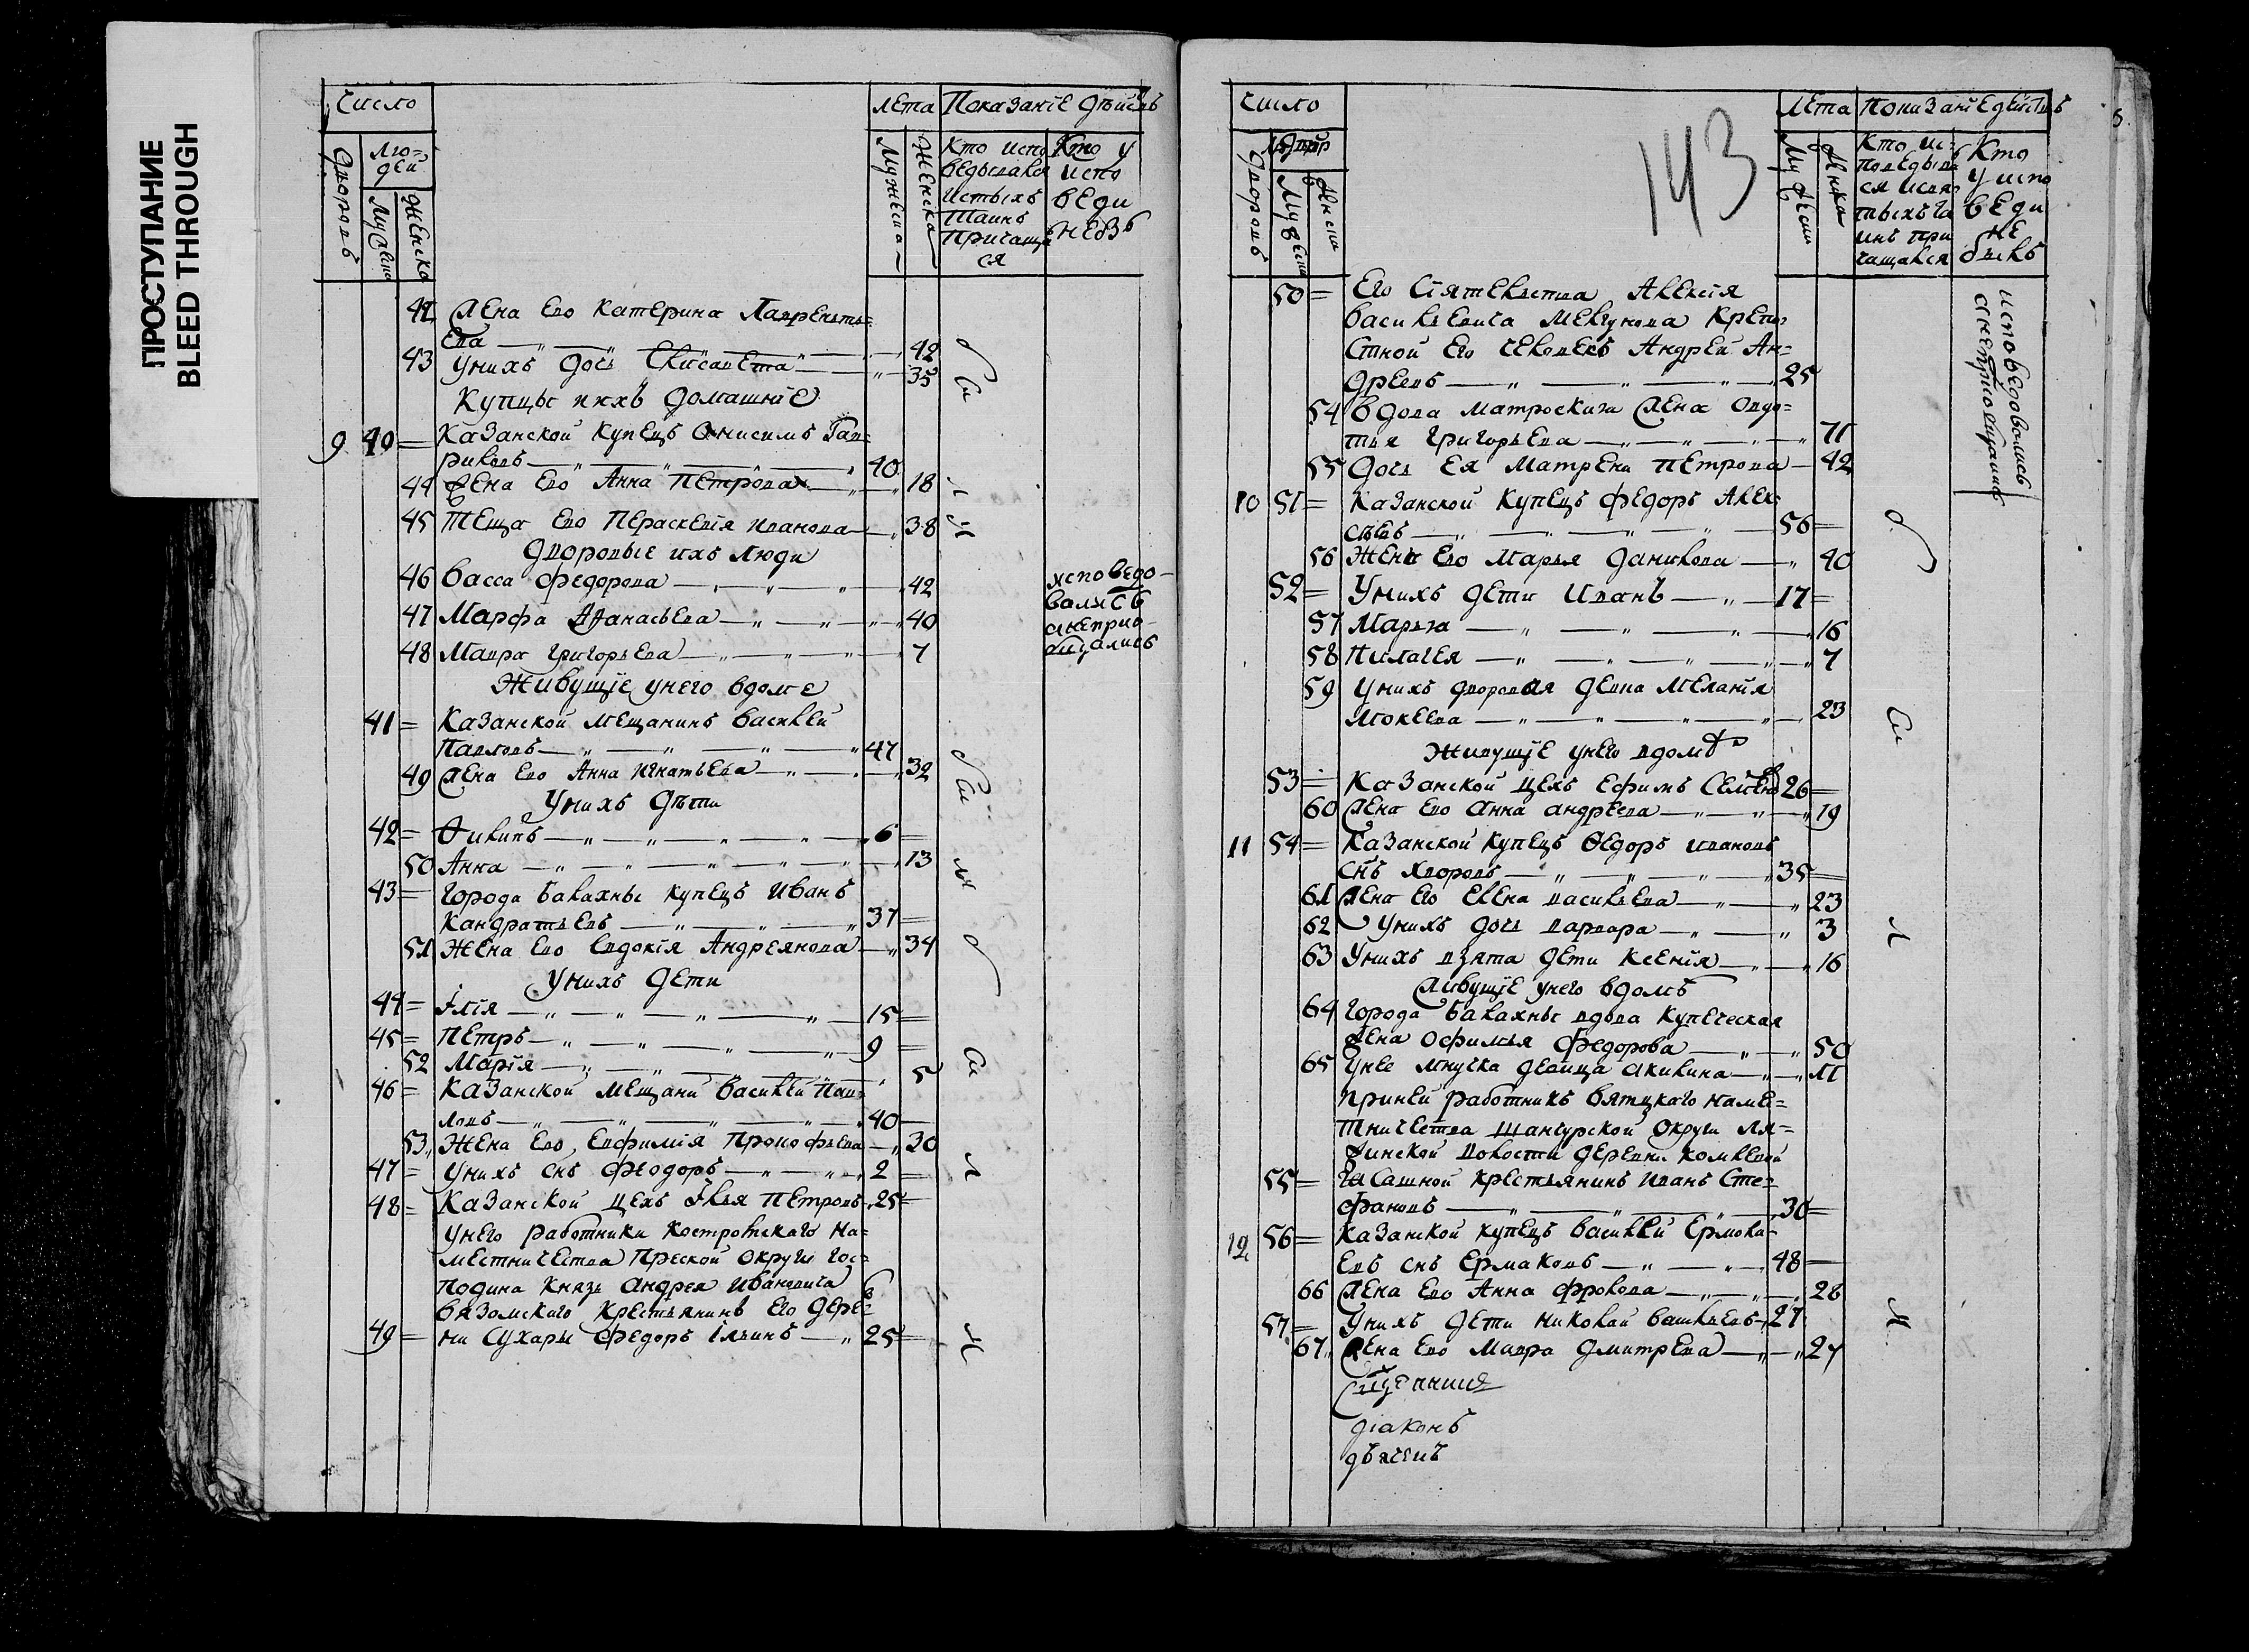 ПРОСТУПАНИЕ
BLEED THROUGH
число
лета Показанiе дѣйсвъ
дворовъ
лю=
дей
мужеска
женска
мужеска
женска
Кто испо
ведывался
истыхъ
таинъ
причаща
ся
Кто у
испо
веди
небъ
42 жена ево Катерина Лаврентье=
ва 42
43 унихъ дочь Елисавета 35
Купцы ихъ домашнiе
9 40 Казанской купецъ Анисимъ Гав=
риловъ 40
44 жена ево Анна Петрова 18
45 теща ево Параскевiя иванова 38
дворовые ихъ люди
46 васса федорова 42
47 Марфа Афанасьева 40
48 Мавра григорьева 7
исповедо-
вались
анеприо-
бщались
Живущiе унего вдоме
41 Казанской мещанинъ василей
Павловъ 47
49 жена ево Анна игнатьева 32
Унихъ дѣти
42 Филипъ 6
50 Анна 13
43 города балахны купецъ Иванъ
Кандратьевъ 37
51 жена ево Евдокiя Андреянова 34
Унихъ дети
44 Илiя 15
45 Петръ 9
52 Марiя 5
46 Казанской мещани василей Пав=
ловъ 40
53 жена ево Евфимiя Прокофьева 30
47 унихъ снъ феодоръ 2
48 Казанской цехъ Илья Петровъ 25
унего работники костромскаго на=
местничества Плеской округи гос=
подина Князь андрея Ивановича
вяземскаго крестьянинъ его дере=
49 ни Сухары федоръ iльинъ 25
143
число
лета Показанiе действъ
дворовъ
Кто ис=
поведывал
ся исвя
тыхъ та
инъ при
чащался
Кто
у испо
веди
не
былъ
50 Его Сiятельства Алексiя
васильевича Мелгунова крепо
стной его человекъ Андрей Ан=
дреевъ 25
54 вдова матроскиза жена Овдо=
тья григорьева 71
55 дочь ея Матрена Петрова 42
исповедовались
анеприобщались
10 51 Казанской купецъ федоръ Алек
сѣевъ 56
56 жена ево Марья данилова 40
52 Унихъ дети Иванъ 17
57 Марья 16
58 Пилагея 7
59 унихъ дворовая девка Меланiя
Мокеева 23
Живущiе унего вдомѣ
53 Казанской цехъ Ефимъ Семенов 26
60 жена ево Анна андреева 19
11 54 Казанской купецъ Ѳедоръ ивановъ
снъ Хворовъ 35
61 жена его Елена васильева 23
62 унихъ дочь варвара 3
63 Унихъ взята дети Ксенiя 16
живущiе унего вдомѣ
64 города балахны вдова купеческая
жена офимья федорова 50
65 унее мнучка девица акилина 11
принеи работникъ вятцкаго наме=
тничества Шангурской округи ля=
жинской волости деревни комлевой
55 Ясашной крестьянинъ иванъ Сте=
фановъ 30
12 56 Казанской купецъ василей Ермола=
евъ снъ Ермаковъ 48
66 жена ево Анна фролова 28
57 Унихъ дети николай васильевъ 27
67 жена ево Мавра дмитрева 27
Священникъ
дiаконъ
дьячекъ